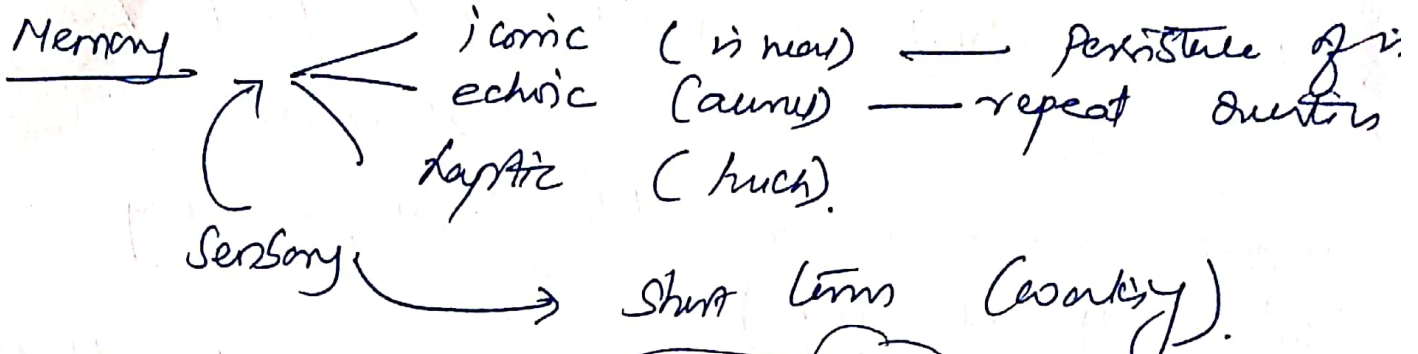 Memory
iconic (visual) — Persistence of
echoic (aural) — repeat questions
haptic (touch).
Sensory
Short term (working).